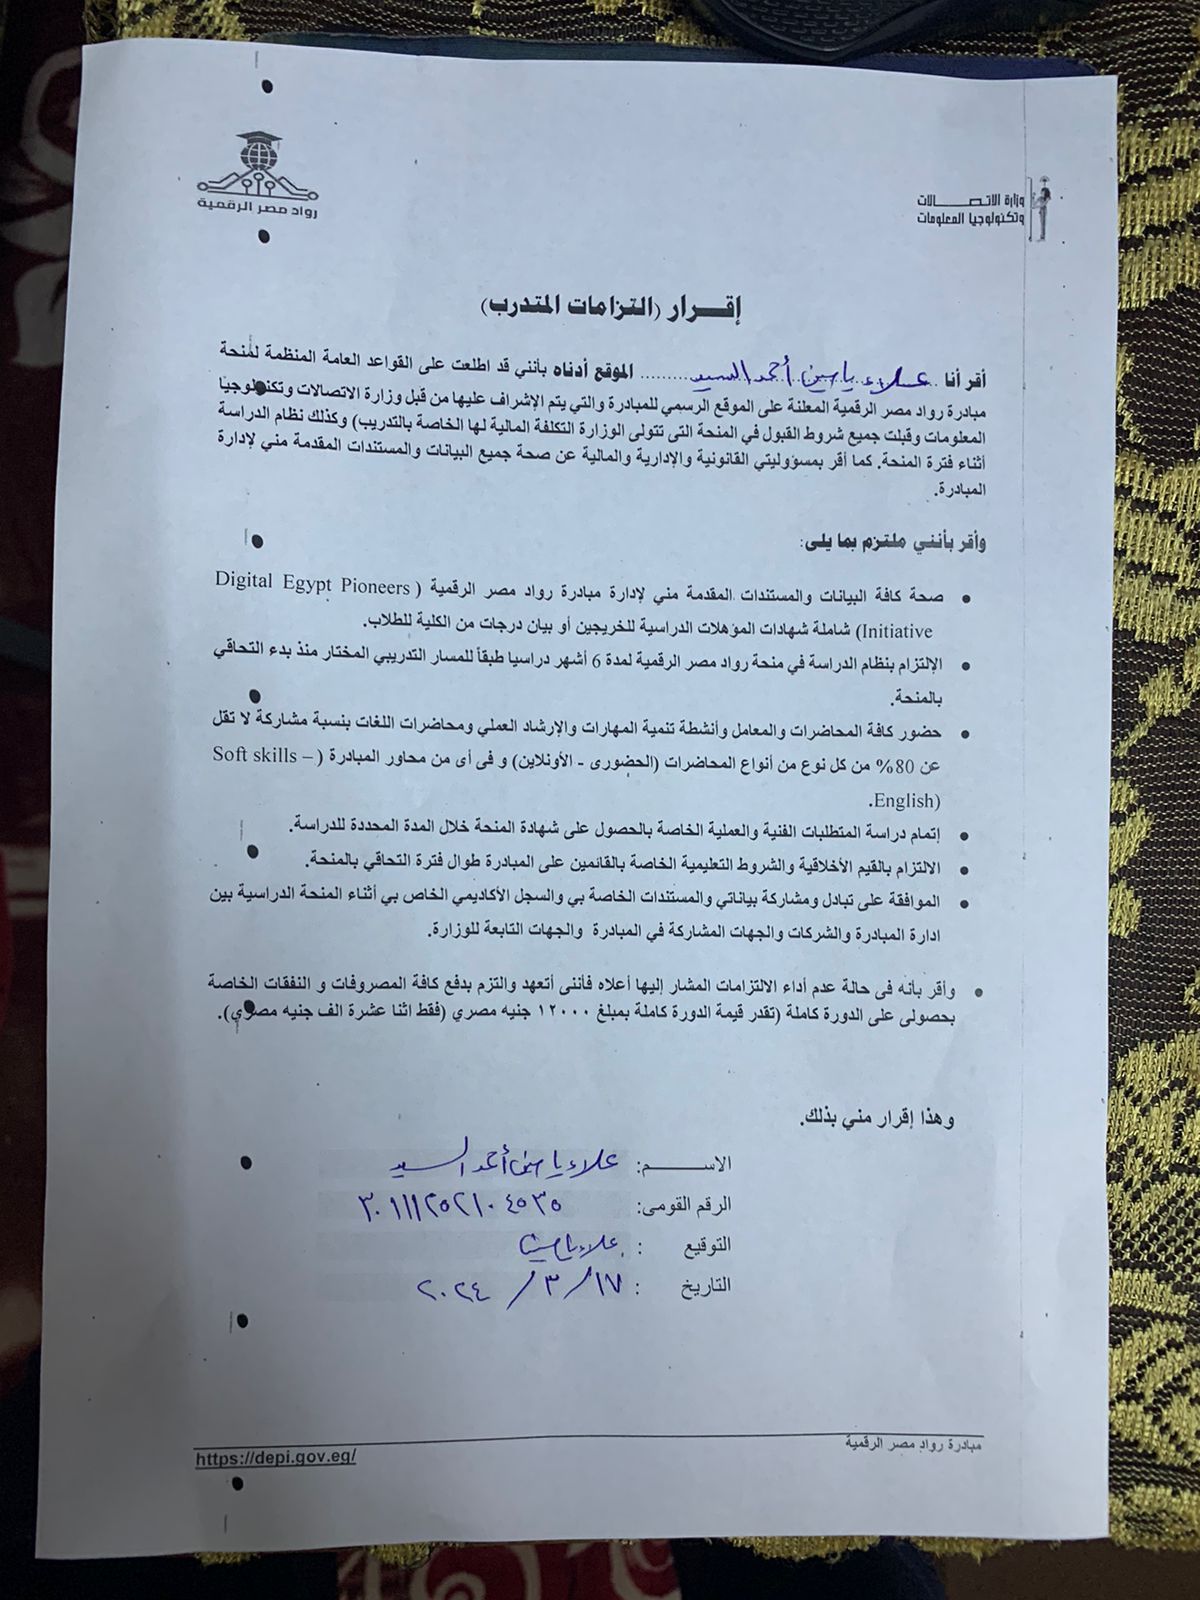 رواد مصر الرقمية
وزارة الاتصالات
وتكنولوجيا المعلومات
إقرار (التزامات المتدرب)
أقر أنا علاء ياسين أحمد السيد الموقع أدناه بأنني قد اطلعت على القواعد العامة المنظمة لمنحة
مبادرة رواد مصر الرقمية المعلنة على الموقع الرسمي للمبادرة والتي يتم الإشراف عليها من قبل وزارة الاتصالات وتكنولوجيا
المعلومات وقبلت جميع شروط القبول في المنحة التى تتولى الوزارة التكلفة المالية لها الخاصة بالتدريب) وكذلك نظام الدراسة
أثناء فترة المنحة. كما أقر بمسؤوليتي القانونية والإدارية والمالية عن صحة جميع البيانات والمستندات المقدمة مني لإدارة
المبادرة.
وأقر بأنني ملتزم بما يلى:
• صحة كافة البيانات والمستندات المقدمة مني لإدارة مبادرة رواد مصر الرقمية (Digital Egypt Pioneers
Initiative) شاملة شهادات المؤهلات الدراسية للخريجين أو بيان درجات من الكلية للطلاب.
• الإلتزام بنظام الدراسة في منحة رواد مصر الرقمية لمدة 6 أشهر دراسيا طبقاً للمسار التدريبي المختار منذ بدء التحاقي
بالمنحة.
• حضور كافة المحاضرات والمعامل وأنشطة تنمية المهارات والإرشاد العملي ومحاضرات اللغات بنسبة مشاركة لا تقل
عن 80% من كل نوع من أنواع المحاضرات (الحضورى - الأونلاين) و فى أى من محاور المبادرة (Soft skills –
English).
• إتمام دراسة المتطلبات الفنية والعملية الخاصة بالحصول على شهادة المنحة خلال المدة المحددة للدراسة.
• الالتزام بالقيم الأخلاقية والشروط التعليمية الخاصة بالقائمين على المبادرة طوال فترة التحاقي بالمنحة.
• الموافقة على تبادل ومشاركة بياناتي والمستندات الخاصة بي والسجل الأكاديمي الخاص بي أثناء المنحة الدراسية بين
ادارة المبادرة والشركات والجهات المشاركة في المبادرة والجهات التابعة للوزارة.
• وأقر بأنه فى حالة عدم أداء الالتزامات المشار إليها أعلاه فأننى أتعهد والتزم بدفع كافة المصروفات و النفقات الخاصة
بحصولى على الدورة كاملة (تقدر قيمة الدورة كاملة بمبلغ ١٢٠٠٠ جنيه مصري (فقط اثنا عشرة الف جنيه مصري).
وهذا إقرار مني بذلك.
الاســـــم: علاء ياسين أحمد السيد
الرقم القومى: ٣٠١١١٢٥٢١٠٤٥٣٥
التوقيع : علاء ياسين
التاريخ : ١٧/ ٣/ ٢٠٢٤
مبادرة رواد مصر الرقمية
https://depi.gov.eg/